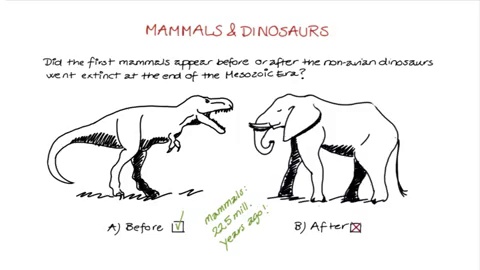 MAMMALS & DINOSAURS
Did the first mammals appear before or after the non-avian dinosaurs
went extinct at the end of the Mesozoic Era?
A) Before
mammals:
225 mill.
years ago!
B) After